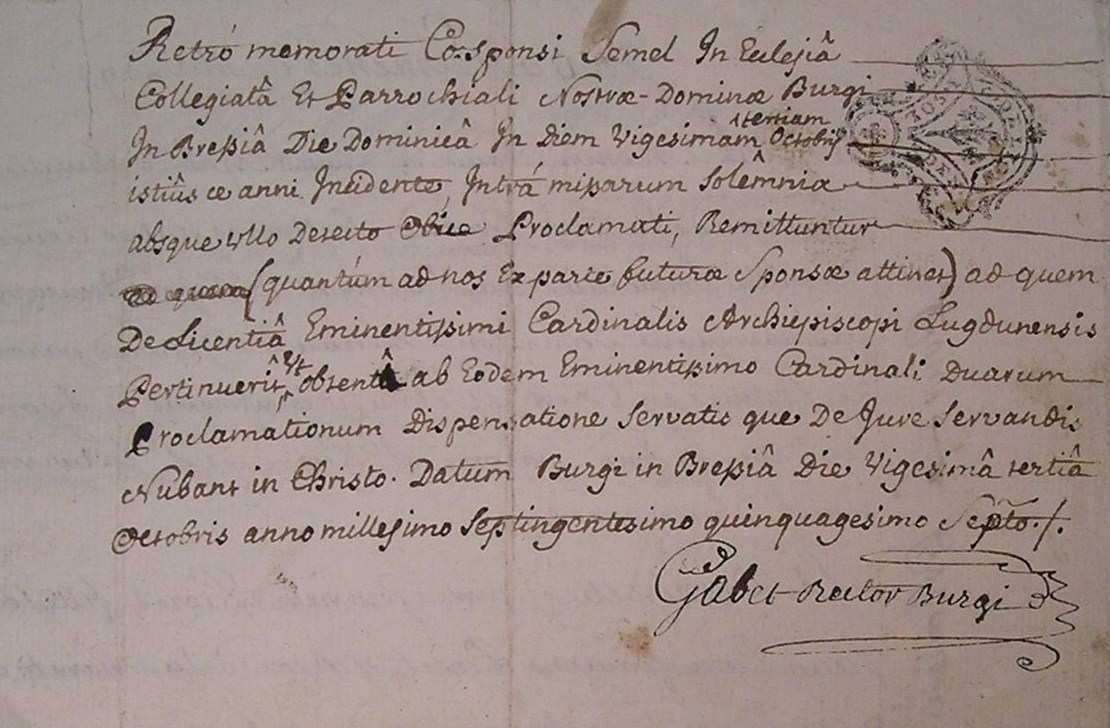 Retró memorati Co-sponsi Semel In Eclesiâ
Collegiatâ Et Parrochiali Nostræ-Dominæ Burgi
In Bressiâ Die Dominicâ In Diem Vigesimam tertiam Octobris
istiûs ce anni Incidente, Intrá missarum solêmnia
absque ullo Detecto Obice Proclamati, Remittuntur
(quantúm ad nos Ex parte futuræ Sponsæ attinet) ad quem
De Licentiâ Eminentissimi Cardinalis Archiepiscopi Lugdunensis
Pertinuerit, Et obtentâ ab Eodem Eminentissimo Cardinali Duarum
Proclamationum Dispensatione servatis que De Jure servandis
Nubant in Christo. Datum Burgi in Bressiâ Die Vigesimâ tertiâ
Octobris anno millesimo Septingentesimo quinquagesimo Septo./.
Gabet Rector Burgi